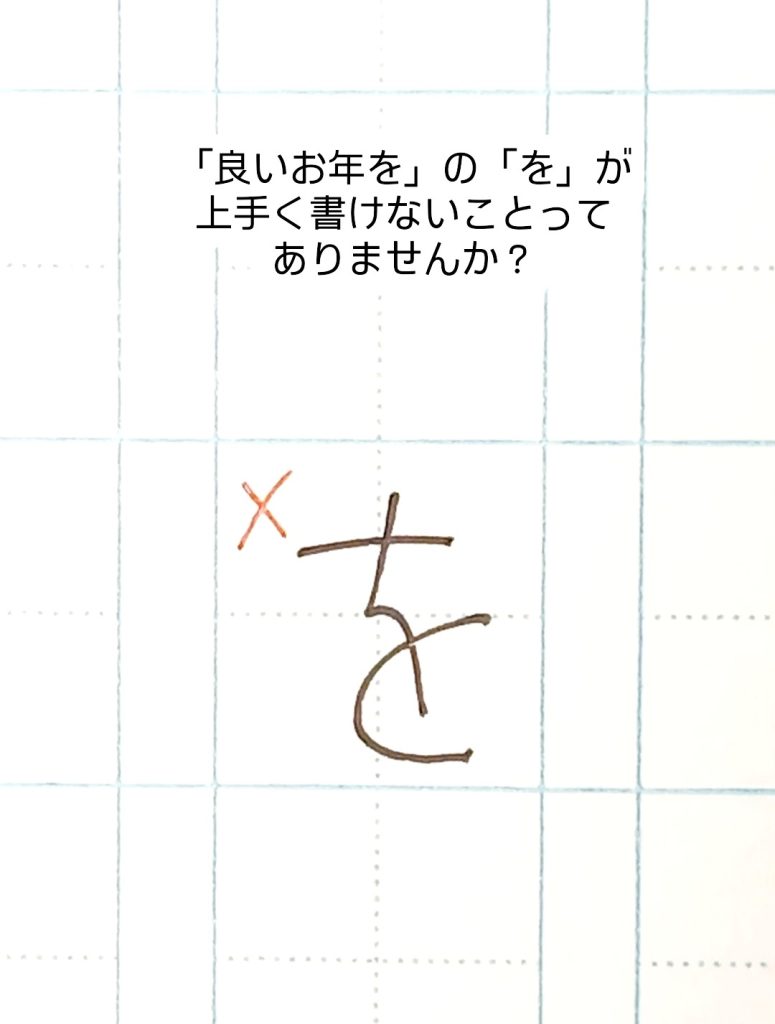 「良いお年を」の「を」が
上手く書けないことって
ありませんか？
×
を